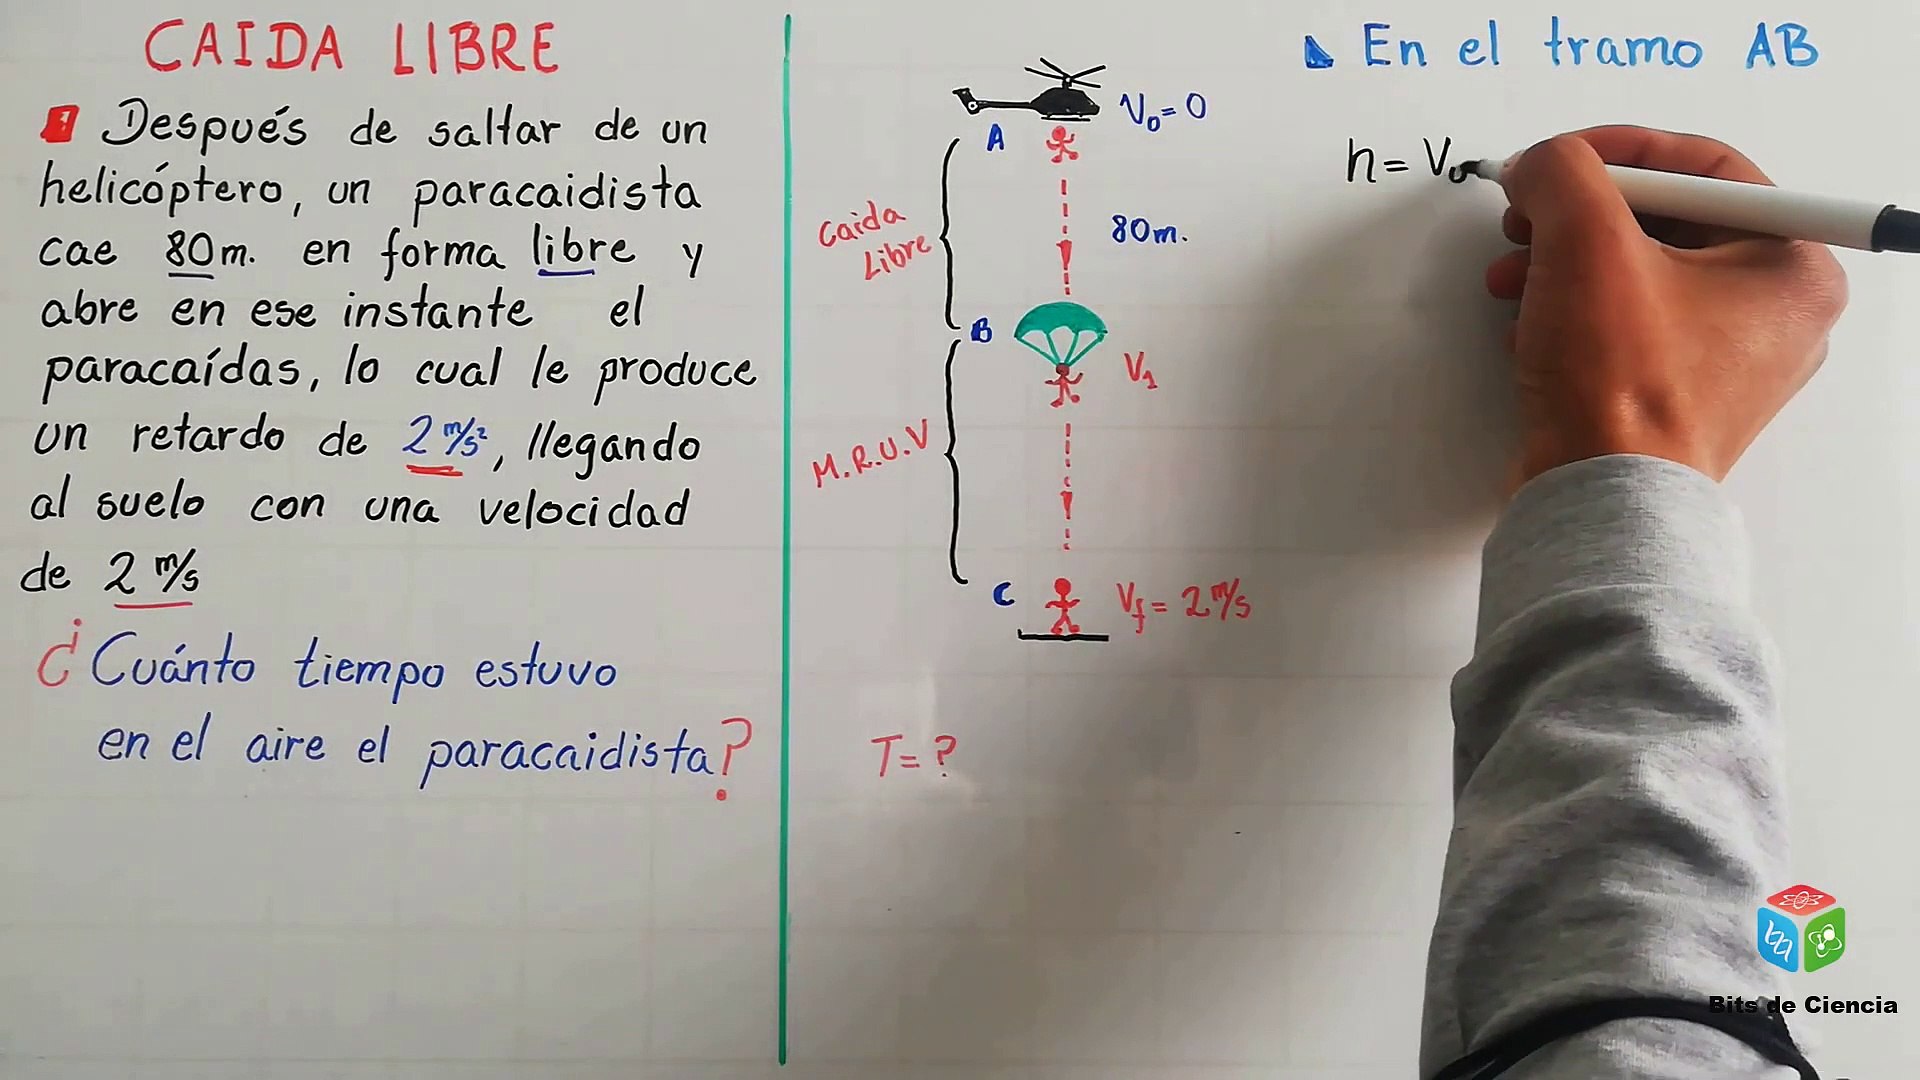 CAIDA LIBRE
Después de saltar de un
helicóptero, un paracaidista
cae 80m. en forma libre y
abre en ese instante el
paracaídas, lo cual le produce
un retardo de 2 m/s², llegando
al suelo con una velocidad
de 2 m/s
¿Cuánto tiempo estuvo
en el aire el paracaidista?
V₀ = 0
A
Caida
Libre
80m.
B
V₁
M.R.U.V
C
Vf = 2 m/s
T = ?
En el tramo AB
h = V₀
Bits de Ciencia